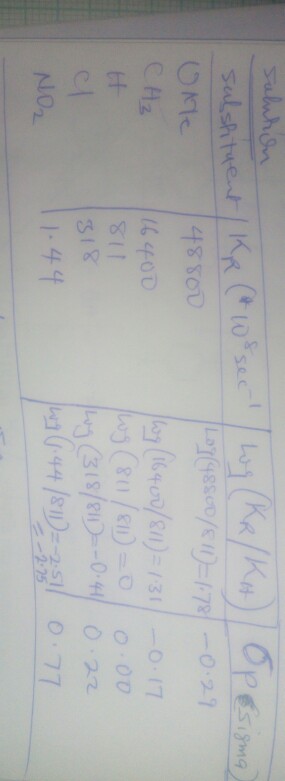 solution
Substituent KR (*10^8 sec^-1 log (KR/KH) σp (Sigma)
OMe 48800 log(48800/811)=1.78 -0.29
CH3 16400 log(16400/811)=1.31 -0.17
H 811 log (811/811)=0 0.00
Cl 318 log(318/811)=-0.41 0.22
NO2 1.44 log(1.44/811)=-2.51 0.77
= -2.75